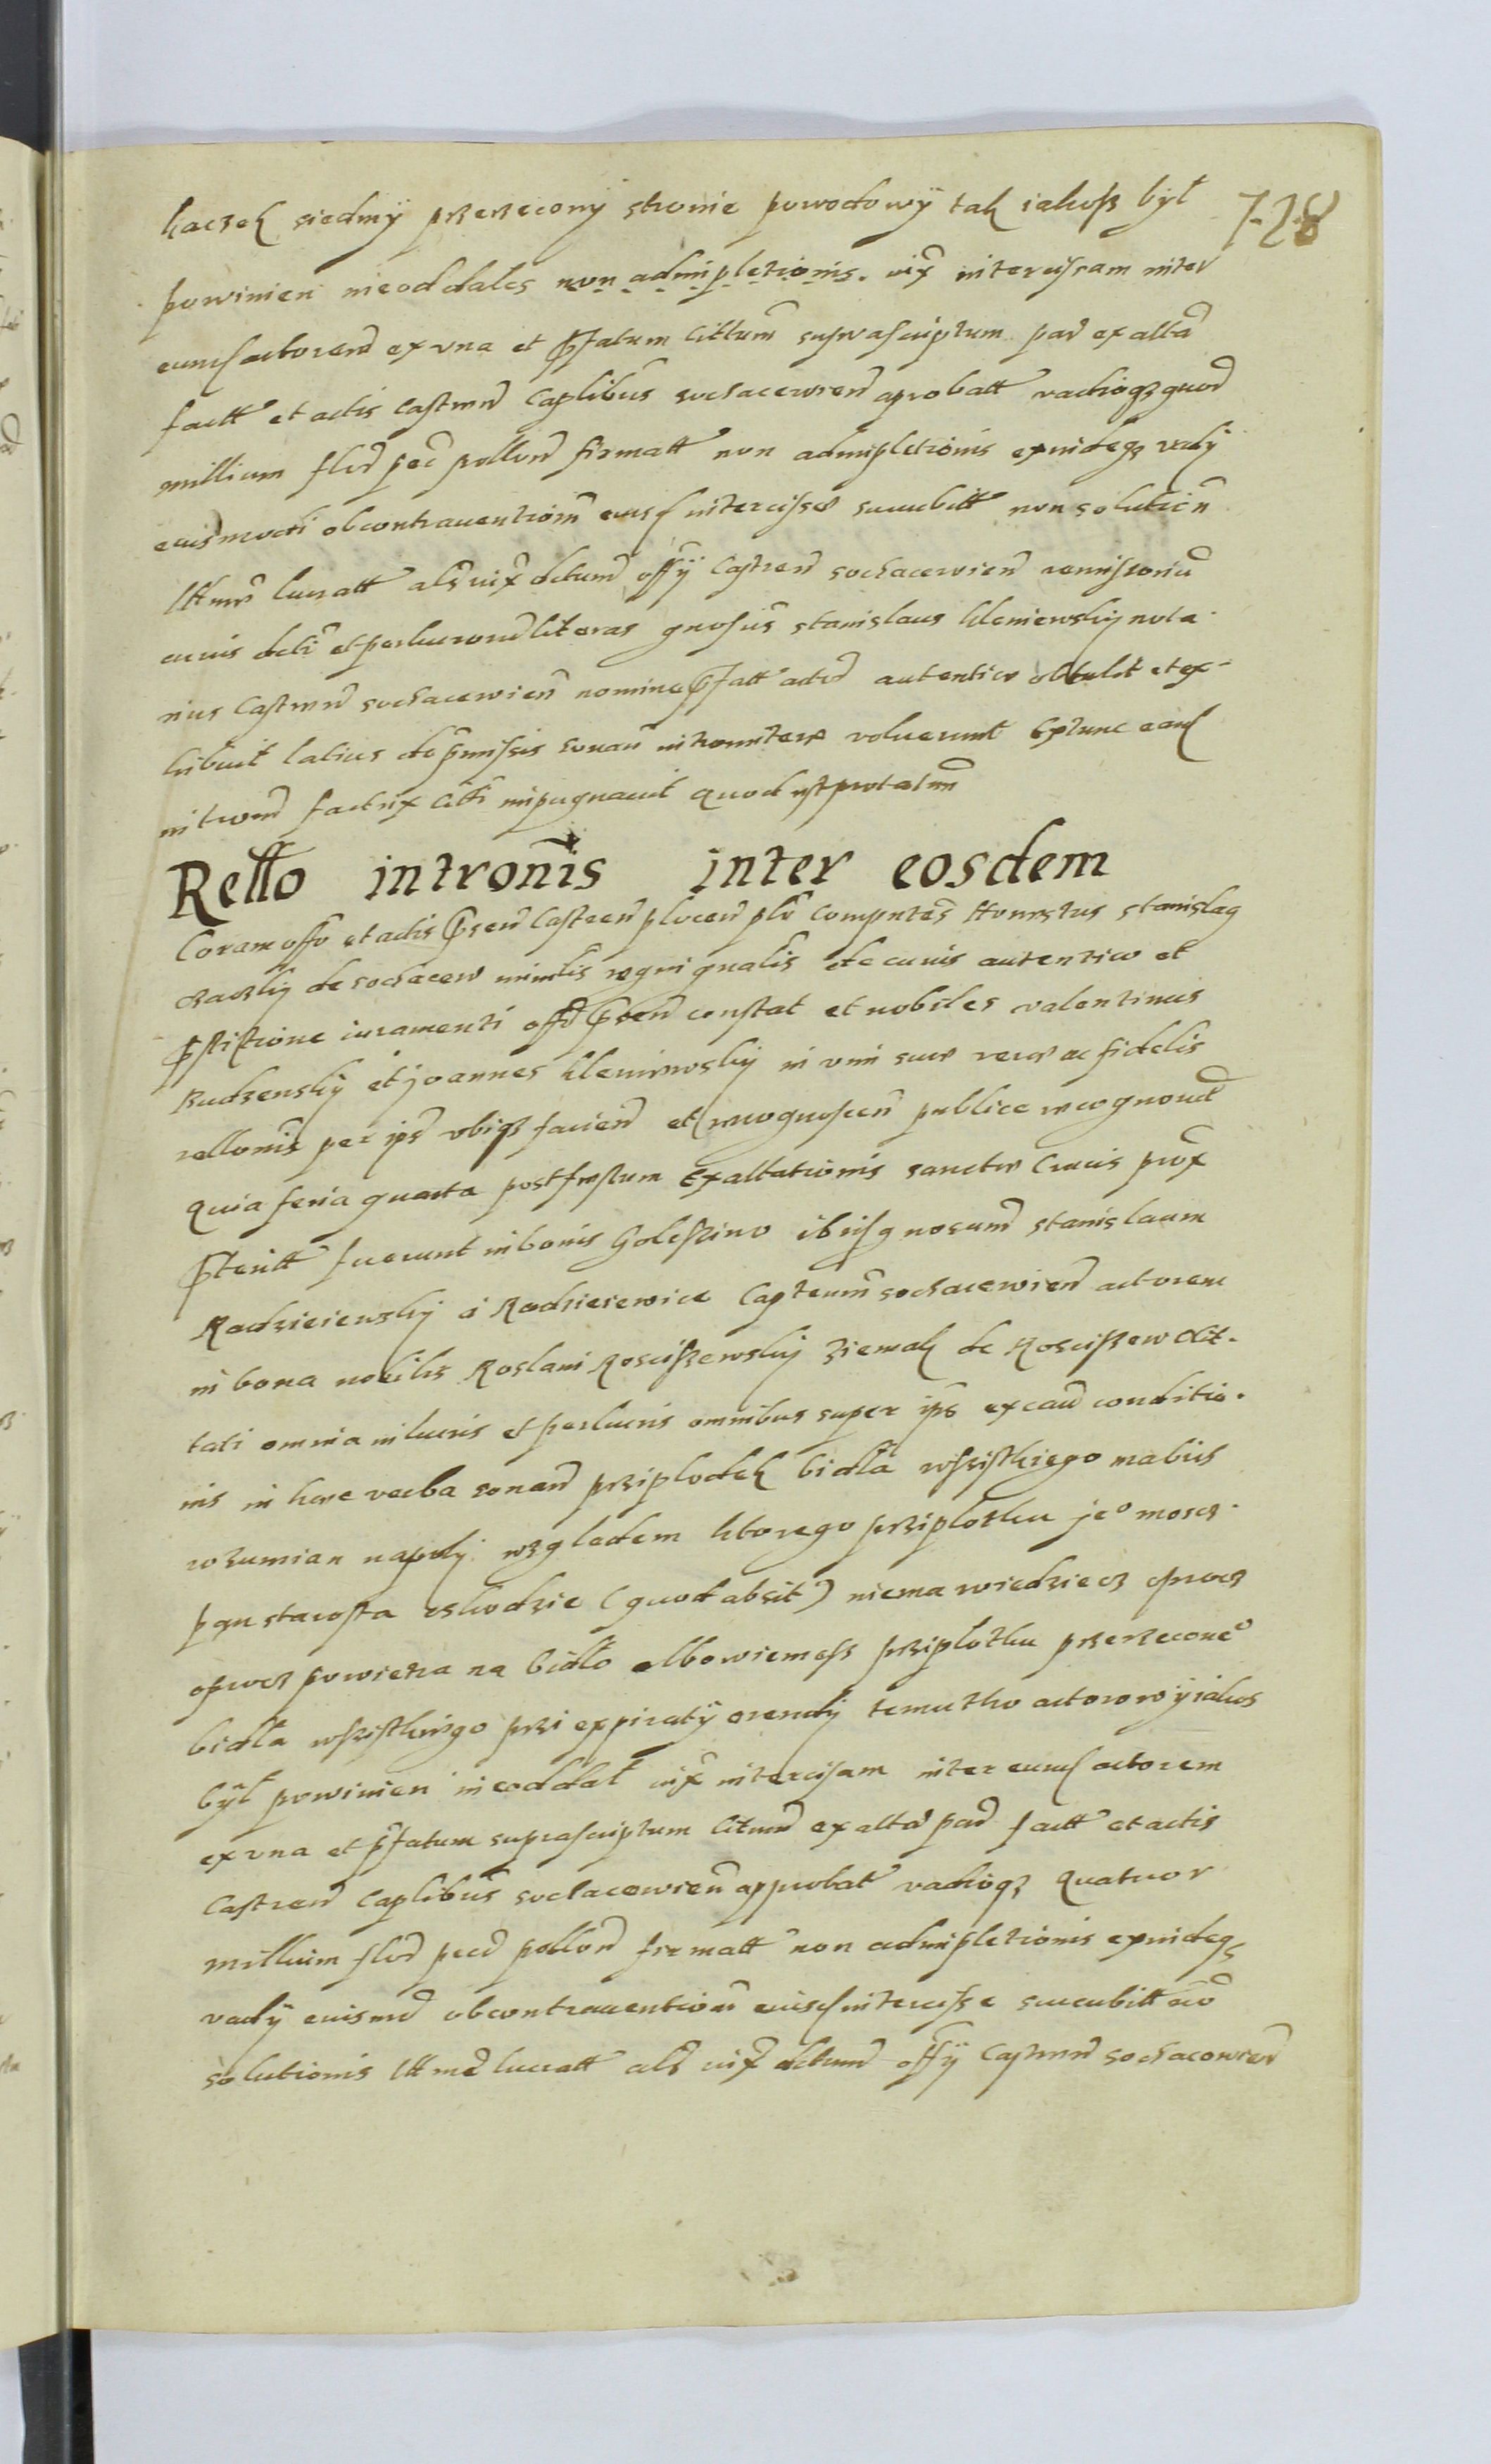 728
kaczek siedmÿ przerzeconÿ stronie powodowÿ tak iakosz bÿł
powinien nieoddales non adimpletionis. iux intercisam inter
eund actorem ex vna et pfatum Cittum suprascriptum par ex alta
factt et actis Castren Caplibus sochacewien aprobatt vadiogz quod
millium flor pec pollon firmatt non adimpletionis exindegz vadÿ
euismodi ob contrauentionem eiusd intercisse succubitt non solution
lucratt als iux dctum offÿ Castren sochacewien remissoriu
cuius dcti et perlucrorum literas gnosus stanislaus kleniewskÿ nota
rius Castren sochacewien nomine pfatt actor autentice obtulit et ex-
hibuit latius de pmissis sonan intromittere voluerunt Extunc eand
introm factux impugnauit quod est protatum
Rello intronis inter eosdem
Coram offo et actis psen Castren plocen plr Comparentes Honestus stanislaq
de sochacew minlis regni gnalis de cuius autentico et
pstitione iuramenti offo psen constat et nobiles valentinus
Rudzenskÿ et joannes kleniewskÿ in vim suae verae ac fidelis
rellonis per ips vbiqz facien et recognoscen publice recognouert
Quia feria quarta post festum Exaltationis sanctae Crucis prox
pteritt fuerunt in bonis Goleszino ibiq gnosum stanislaum
Radzieienskÿ a Radzieiewice Capteum sochacewien actorem
in bona nobilis Roslani Rosciszewskÿ ziemak de Rosciszew Cit-
tati omnia in lucris et perlucris omnibus super ips ex cau conditio-
nis in haec verba sonan przÿplodek bidła wszistkiego mabics
rozumian napolÿ wzgledem ktorego przÿplotku jeo moscz
pan starosta oskodzie (quod absit) niema wiedziecz oprocz
oprocz powietrza na bidło albowiemesz przÿplotku przerzeconeo
bidła wszistkiego pri expiratÿ arendÿ temuthο actorowÿ iakos
bÿł powinien nieoddał iux intercisam inter eund actorem
ex vna et pfatum suprascriptum Citum ex alta par factt et actis
Castren Caplibus sochacewien approbat vadiogz Quatuor
millium flor pecu pollon firmatt non adimpletionis exindeg
vadÿ euismd ob contrauentionem eiusd intercisse succubitt
solutionis lucratt als iux dctum offÿ Castren sochacewien